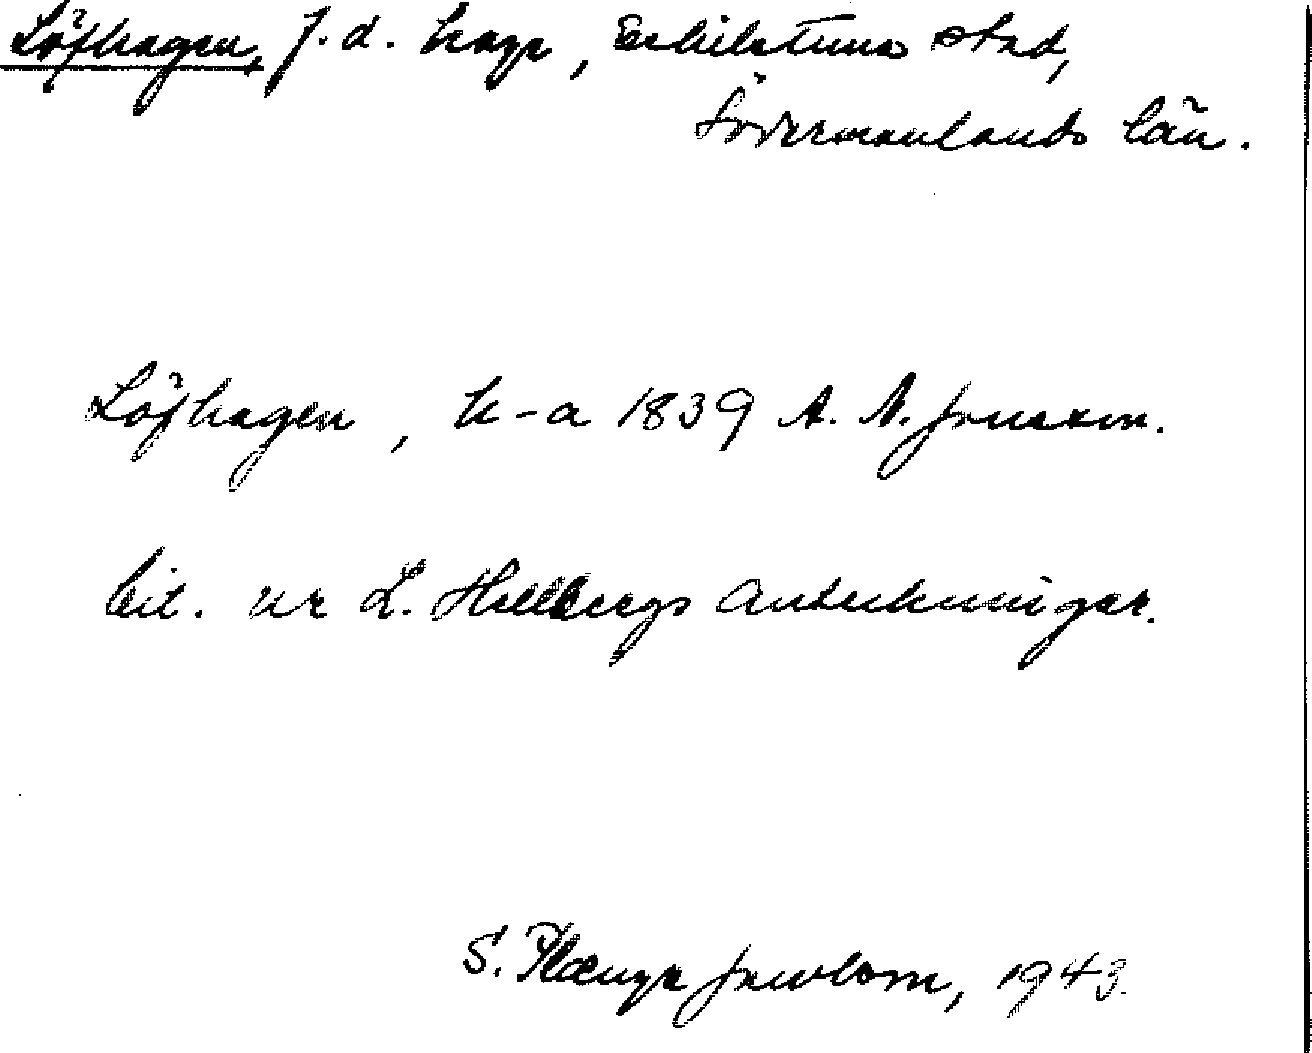 Löfhagen, f.d. krog, Eskilstuna stad,
Södermanlands län.
Löfhagen, k-a 1839 A. N. Jonsson.
Cit. ur L. Hellbergs Anteckningar.
S. Plænge Jacobson, 1943.